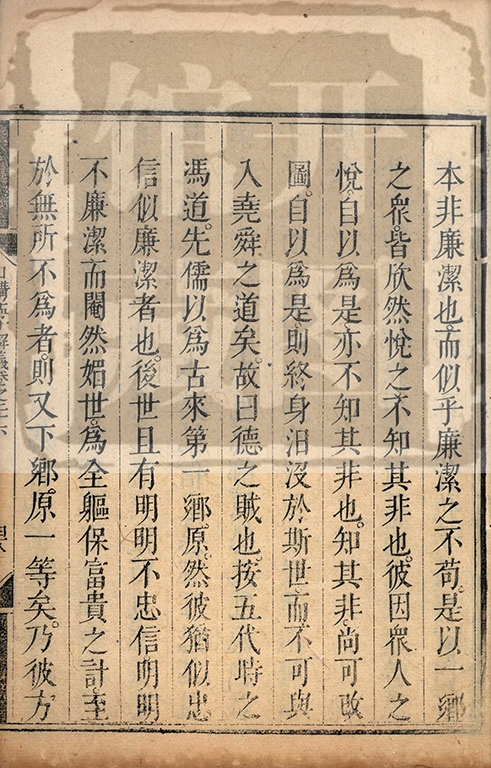 本非廉潔也。而似乎廉潔之不苟。是以一鄉
之眾。皆欣然悅之。不知其非也。彼因眾人之
悅。自以爲是。亦不知其非也。知其非。尚可改
圖。自以爲是。則終身汨沒於斯世。而不可與
入堯舜之道矣。故曰德之賊也。按五代時之
馮道。先儒以爲古來第一鄉原。然彼猶似忠
信似廉潔者也。後世且有明明不忠信明明
不廉潔。而閹然媚世。爲全軀保富貴之計。至
於無所不爲者。則又下鄉原一等矣。乃彼方
講孟子解義卷之三六